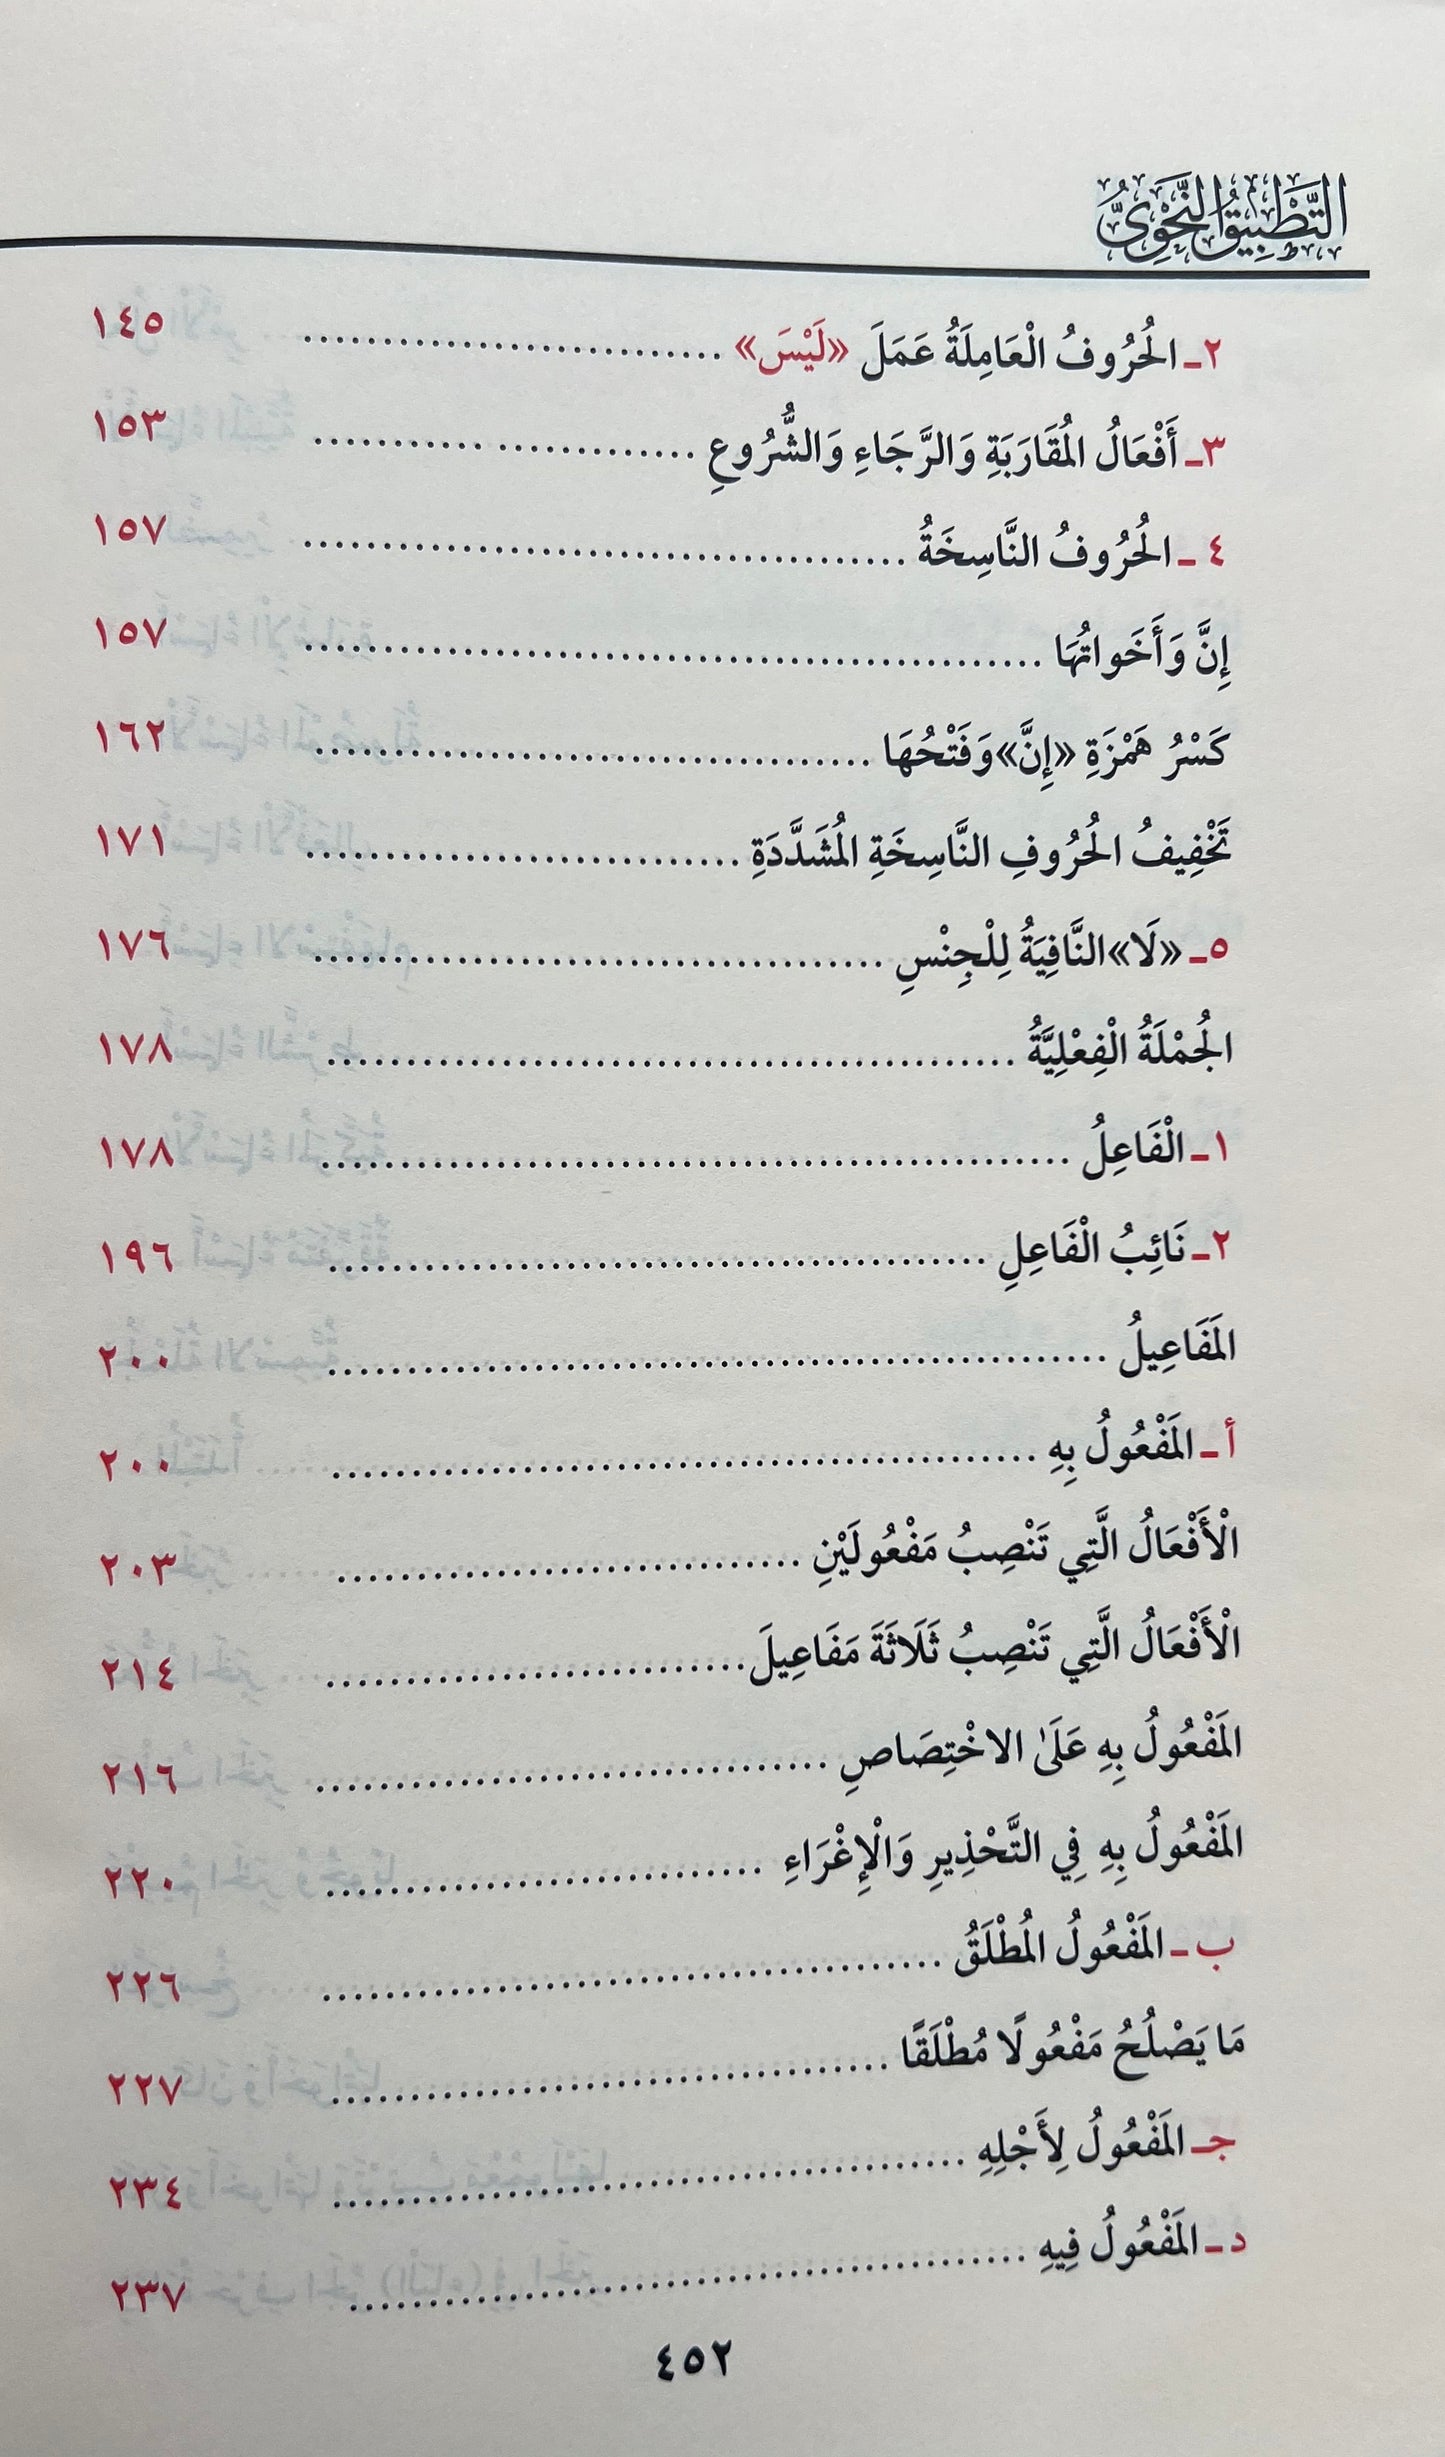 التَّطْبِيقُ النَّحْوِيُّ
٢ـ الْحُرُوفُ الْعَامِلَةُ عَمَلَ «لَيْسَ» ........................... ١٤٥
٣ـ أَفْعَالُ الْمُقَارَبَةِ وَالرَّجَاءِ وَالشُّرُوعِ ........................ ١٥٣
٤ ـ الْحُرُوفُ النَّاسِخَةُ ....................................... ١٥٧
إِنَّ وَأَخَوَاتُهَا ............................................... ١٥٧
كَسْرُ هَمْزَةِ «إِنَّ» وَفَتْحُهَا .................................... ١٦٢
تَخْفِيفُ الْحُرُوفِ النَّاسِخَةِ الْمُشَدَّدَةِ ............................ ١٧١
٥ـ «لَا» النَّافِيَةُ لِلْجِنْسِ .................................... ١٧٦
الْجُمْلَةُ الْفِعْلِيَّةُ ............................................ ١٧٨
١ـ الْفَاعِلُ ................................................ ١٧٨
٢ـ نَائِبُ الْفَاعِلِ .......................................... ١٩٦
الْمَفَاعِيلُ .................................................. ٢٠٠
أ ـ الْمَفْعُولُ بِهِ ............................................. ٢٠٠
الْأَفْعَالُ الَّتِي تَنْصِبُ مَفْعُولَيْنِ .............................. ٢٠٣
الْأَفْعَالُ الَّتِي تَنْصِبُ ثَلَاثَةَ مَفَاعِيلَ ........................... ٢١٤
الْمَفْعُولُ بِهِ عَلَىٰ الاخْتِصَاصِ ................................. ٢١٦
الْمَفْعُولُ بِهِ فِي التَّحْذِيرِ وَالْإِغْرَاءِ ............................ ٢٢٠
ب ـ الْمَفْعُولُ الْمُطْلَقُ ........................................ ٢٢٦
مَا يَصْلُحُ مَفْعُولًا مُطْلَقًا .................................... ٢٢٧
جـ ـ الْمَفْعُولُ لِأَجْلِهِ ........................................ ٢٣٤
د ـ الْمَفْعُولُ فِيهِ ........................................... ٢٣٧
٤٥٢